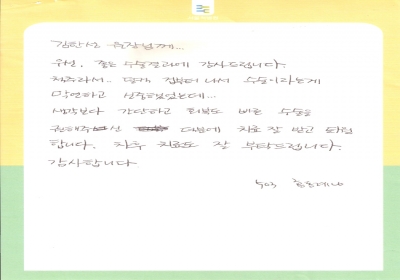 김한선 원장님께...
우선, 좋은 수술결과에 감사드립니다.
처음라서.. 겁부터 나서 수술이라는게
막연하고 심란했었는데...
생각보다 간단하고 회복도 빠른 수술을
권해주신 덕분에 치료 잘 받고 퇴원
합니다. 차후 치료도 잘 부탁드립니다.
감사합니다
503